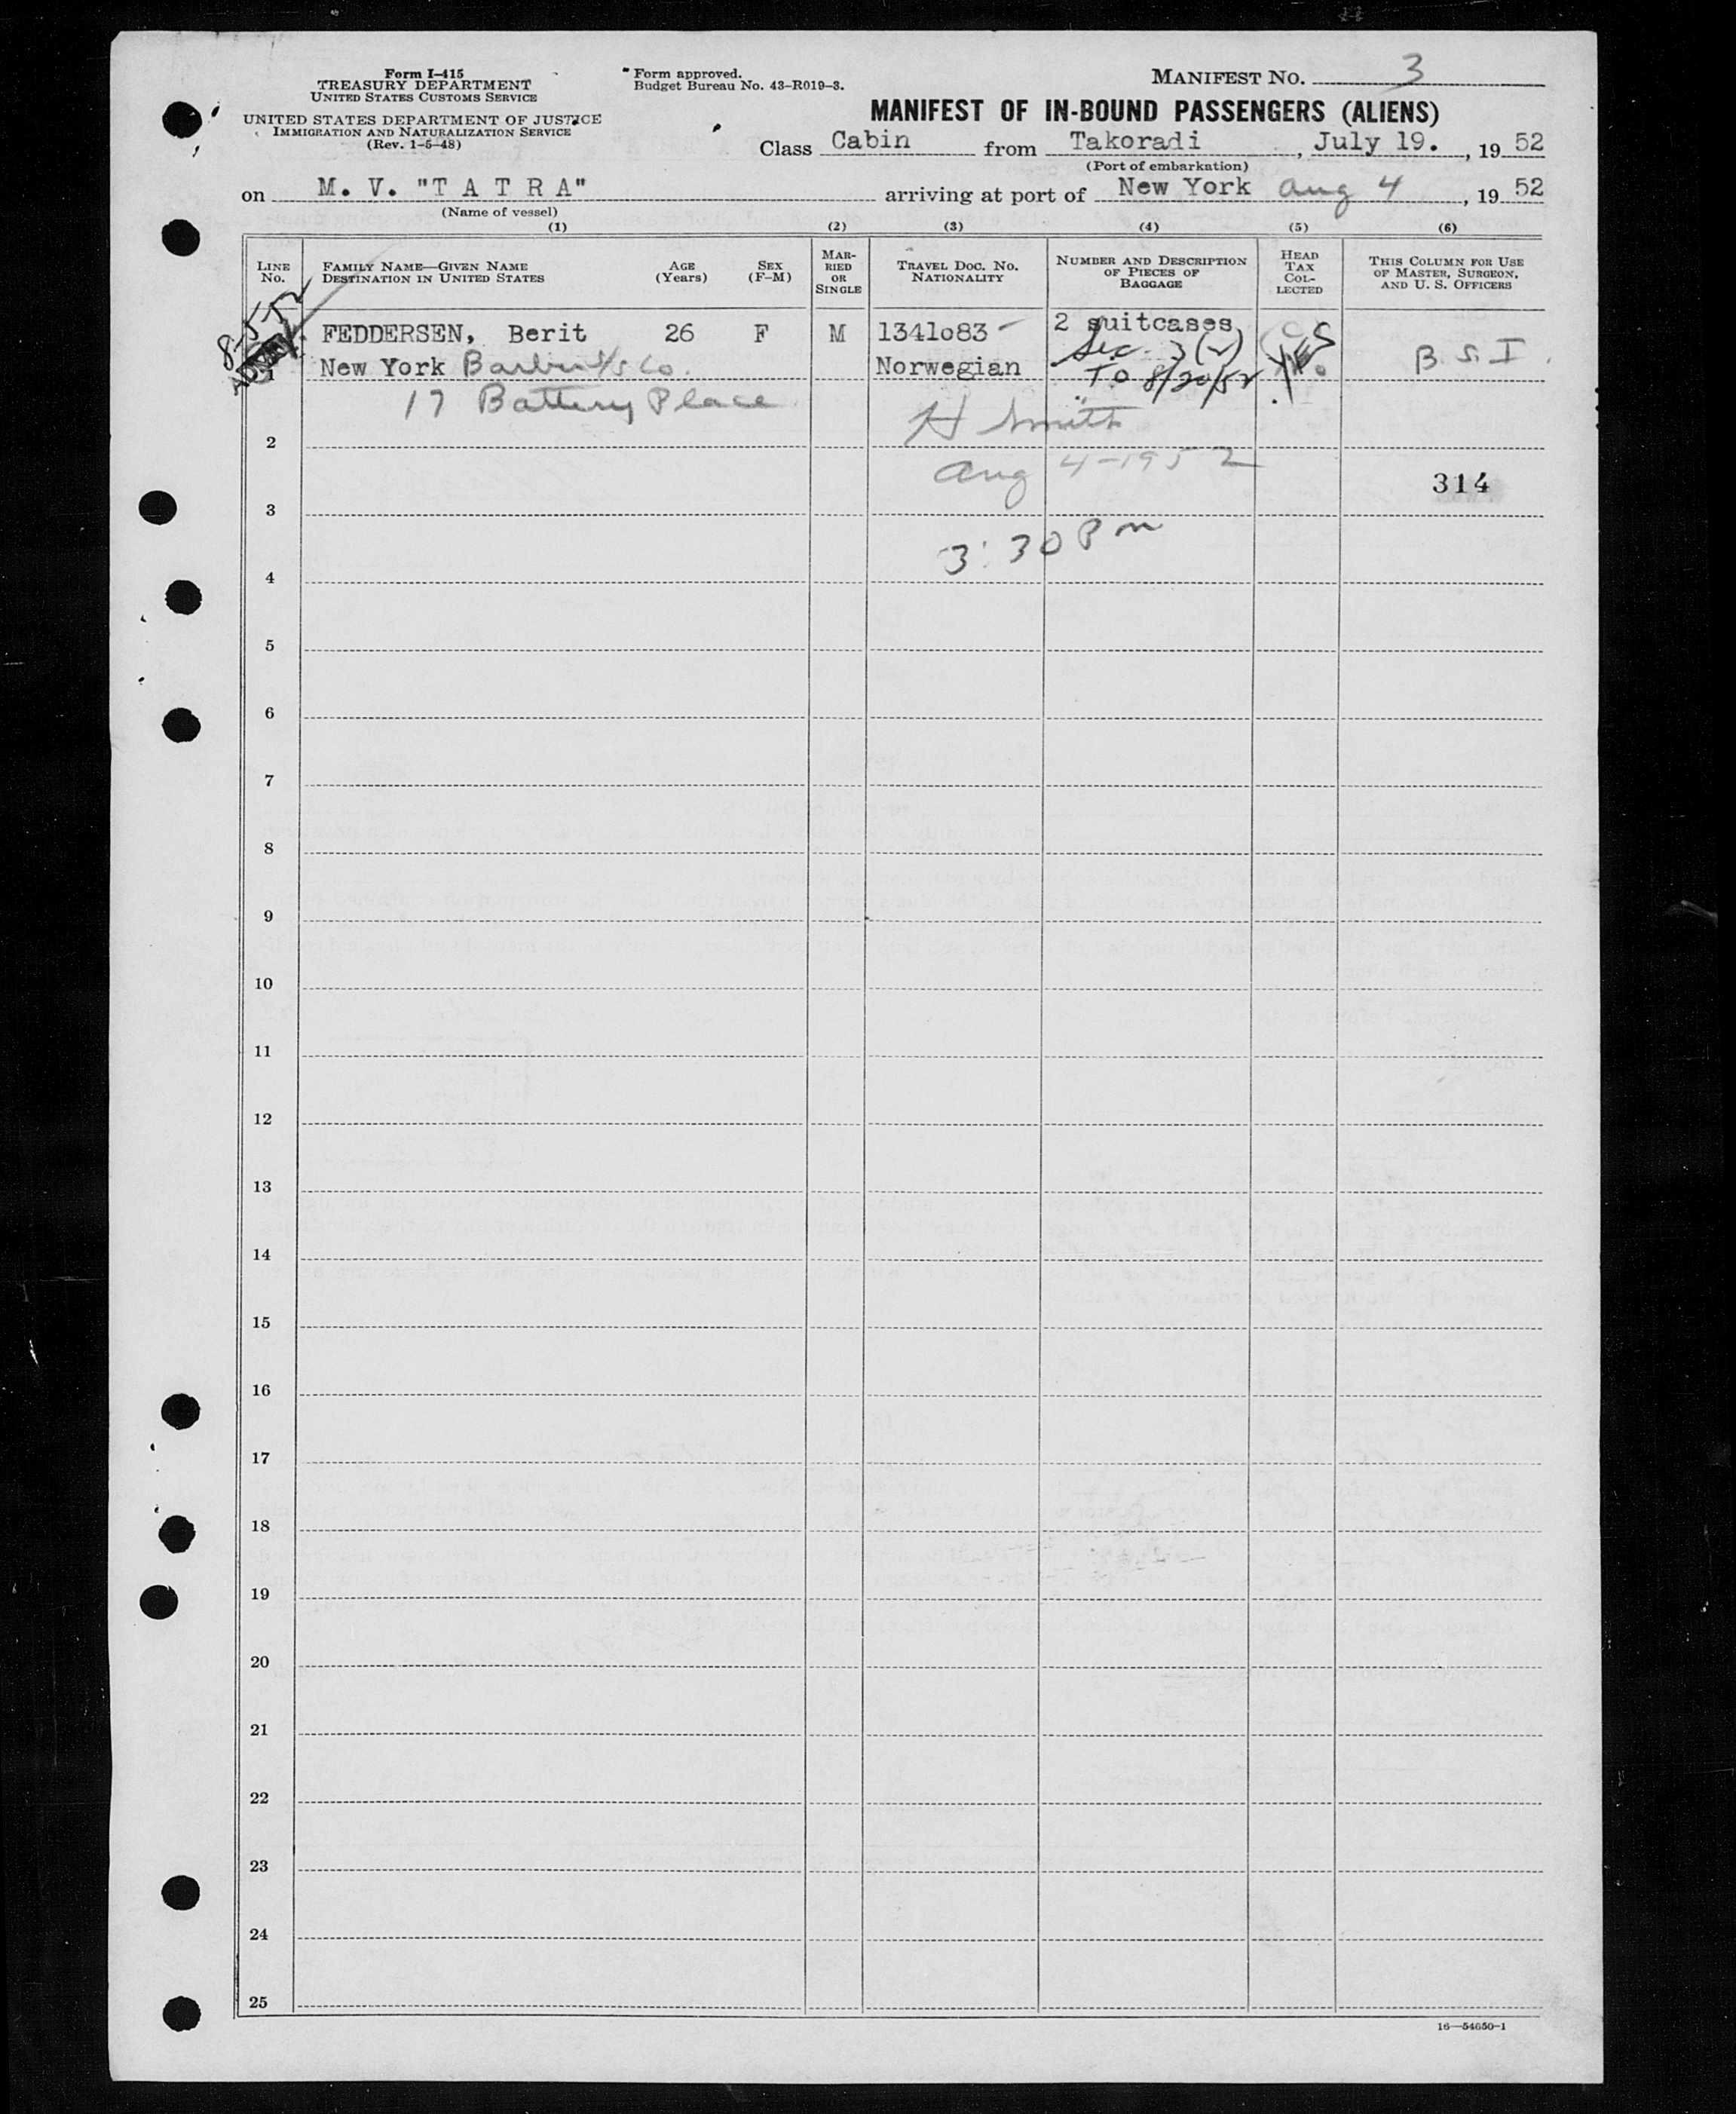 Form I-415
TREASURY DEPARTMENT
UNITED STATES CUSTOMS SERVICE
UNITED STATES DEPARTMENT OF JUSTICE
IMMIGRATION AND NATURALIZATION SERVICE
(Rev. 1-5-48)
Form approved.
Budget Bureau No. 43-R019-3.
MANIFEST NO. 3
MANIFEST OF IN-BOUND PASSENGERS (ALIENS)
Class Cabin from Takoradi, July 19., 19 52
(Port of embarkation)
on M. V. "T A T R A" arriving at port of New York Aug 4, 19 52
(Name of vessel)
(1) (2) (3) (4) (5) (6)
LINE NO.
FAMILY NAME—GIVEN NAME
DESTINATION IN UNITED STATES
AGE (Years)
SEX (F-M)
MARRIED OR SINGLE
TRAVEL DOC. NO.
NATIONALITY
NUMBER AND DESCRIPTION OF PIECES OF BAGGAGE
HEAD TAX COLLECTED
THIS COLUMN FOR USE OF MASTER, SURGEON, AND U. S. OFFICERS
8-5-52
FEDDERSEN, Berit 26 F M 1341o83 2 suitcases
Sec. 3(2)
1 New York Barber S/S Co. Norwegian YES B S I
TO 8/20/52
17 Battery Place
H Smith
2
Aug 4-1952
314
3
3:30 Pm
4
5
6
7
8
9
10
11
12
13
14
15
16
17
18
19
20
21
22
23
24
25
16—54650-1